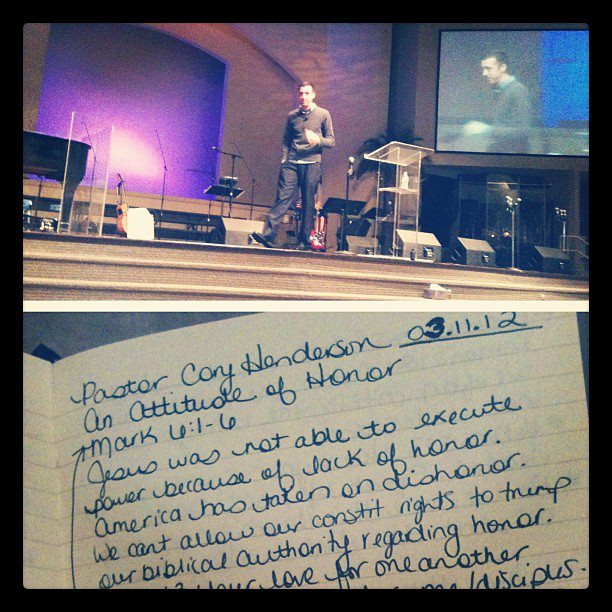 Pastor Cory Henderson 03.11.12
An Attitude of Honor
Mark 6:1-6
Jesus was not able to execute
power because of lack of honor.
America has taken on dishonor.
We cant allow our constit rights to trump
our biblical authority regarding honor.
your love for one another
disciples.